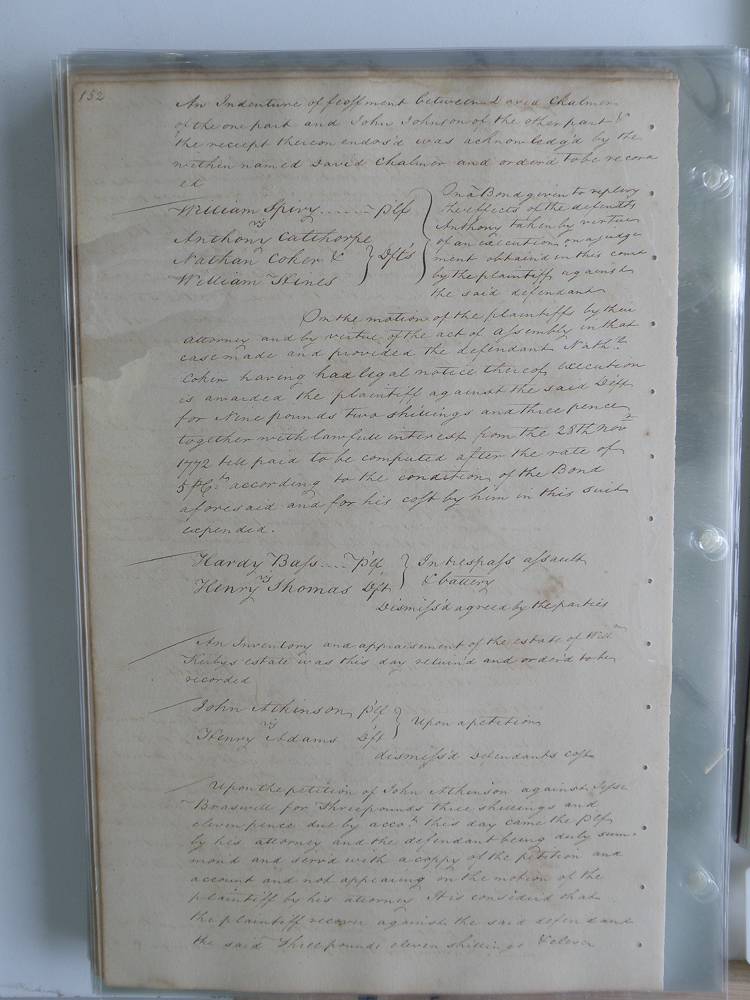 152
An Indenture of feoffment between David Chalmer
of the one part and John Johnson of the other part &
the reciept thereon endors'd was acknowledg'd by the
within named David Chalmer and order'd to be record
ed
William Spivy ...... Plf
vs
Anthony Calthorpe
Nathan Coker & } Dft's
William Hines
On a Bond given to replevy
the effects of the defendts
Anthony taken by virtue
of an execution on a judge
ment obtained in this court
by the plaintiff against
the said defendant
On the motion of the plaintiffs by their
attorney and by virtue of the act of assembly in that
case made and provided the defendant Nathl
Coker having had legal notice thereof execution
is awarded the plaintiff against the said Deft
for Nine pounds two shillings and three pence
together with lawfull interest from the 28th Novr
1772 till paid to be computed after the rate of
5 P Ct according to the condition of the Bond
aforesaid and for his cost by him in this suit
expended.
Hardy Bass .... Plf } In trespass assault
vs
Henry Thomas Dft } & battery
Dismiss'd agreed by the parties
An Inventory and appraisement of the estate of Willm
Kirbys estate was this day return'd and order'd to be
recorded
John Atkinson Plf } Upon a petition
vs
Henry Adams Dft
dismiss'd Defendants cost
Upon the petition of John Atkinson against Jesse
Braswell for Three pounds three shillings and
eleven pence due by accot this day came the Plf
by his attorney and the defendant being duly sum
mond and serv'd with a coppy of the petition and
account and not appearing on the motion of the
plaintiff by his attorney It is considerd that
the plaintiff recover against the said defendant
the said Three pounds eleven shillings & eleven